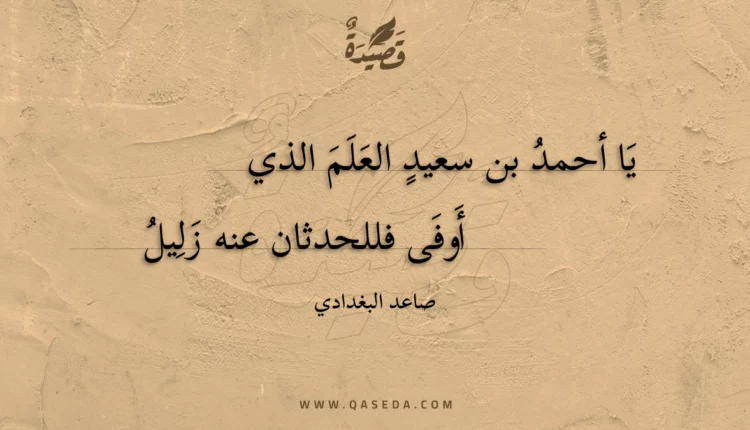 قَصِيْدَةٌ
يَا أحمدُ بن سعيدٍ العَلَمَ الذي
أَوفَى فللحدثان عنه زَلِيلُ
صاعد البغدادي
WWW.QASEDA.COM